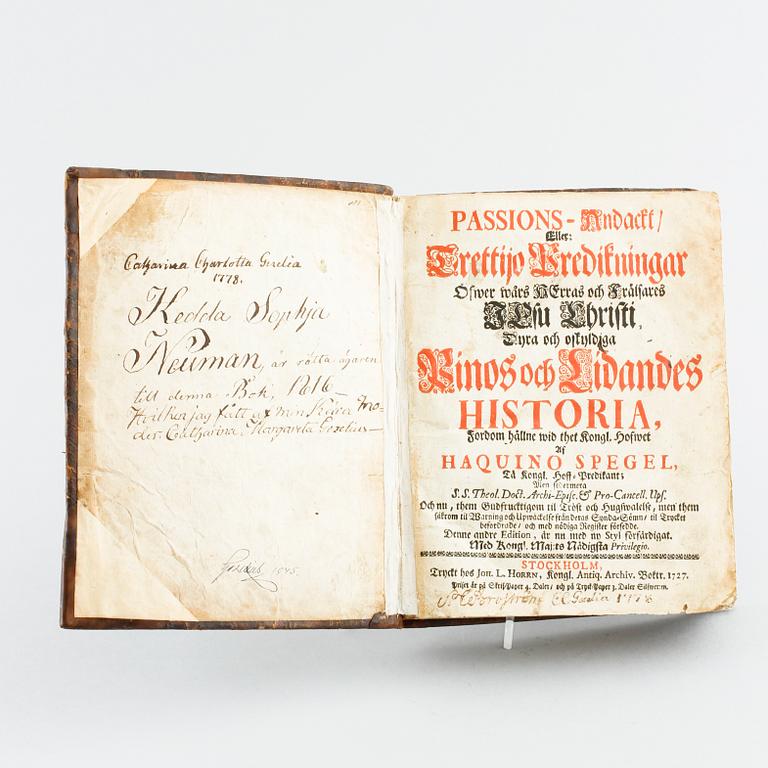 Catharina Charlotta Gezelia
1778.
Hedda Sophja
Neuman, är rätta ägaren
till denna Bok, 1816
Hvilken jag fått af min Kiära Mo-
der Catharina Margareta Gezelius
1945
PASSIONS-Andackt/
Eller:
Trettijo Predikningar
Öfwer wårs HErras och Frälsares
JEsu Christi,
Dyra och oskyldiga
Pinos och Lidandes
HISTORIA,
Fordom hållne wid thet Kongl. Hofwet
Af
HAQUINO SPEGEL,
Tå Kongl. Hoff-Predikant;
Men sidermera
S.S. Theol. Doct. Archi-Episc. & Pro-Cancell. Ups.
Och nu, them Gudfrucktigom til Tröst och Hugswalelse, men them
säkrom til Warning och Upwäckelse från deras Synda-Sömn/ til Trycket
befordrade/ och med nödiga Register försedde.
Denne andre Edition, är nu med ny Styl förfärdigat.
Med Kongl. Maj:ts Nådigsta Privilegio.
STOCKHOLM,
Tryckt hos Joh. L. HORRN, Kongl. Antiq. Archiv. Boktr. 1727.
Priset är på Skrif-Paper 4. Daler/ och på Tryck-Paper 3. Daler Silfwer:m.
C C Gezelia 1778